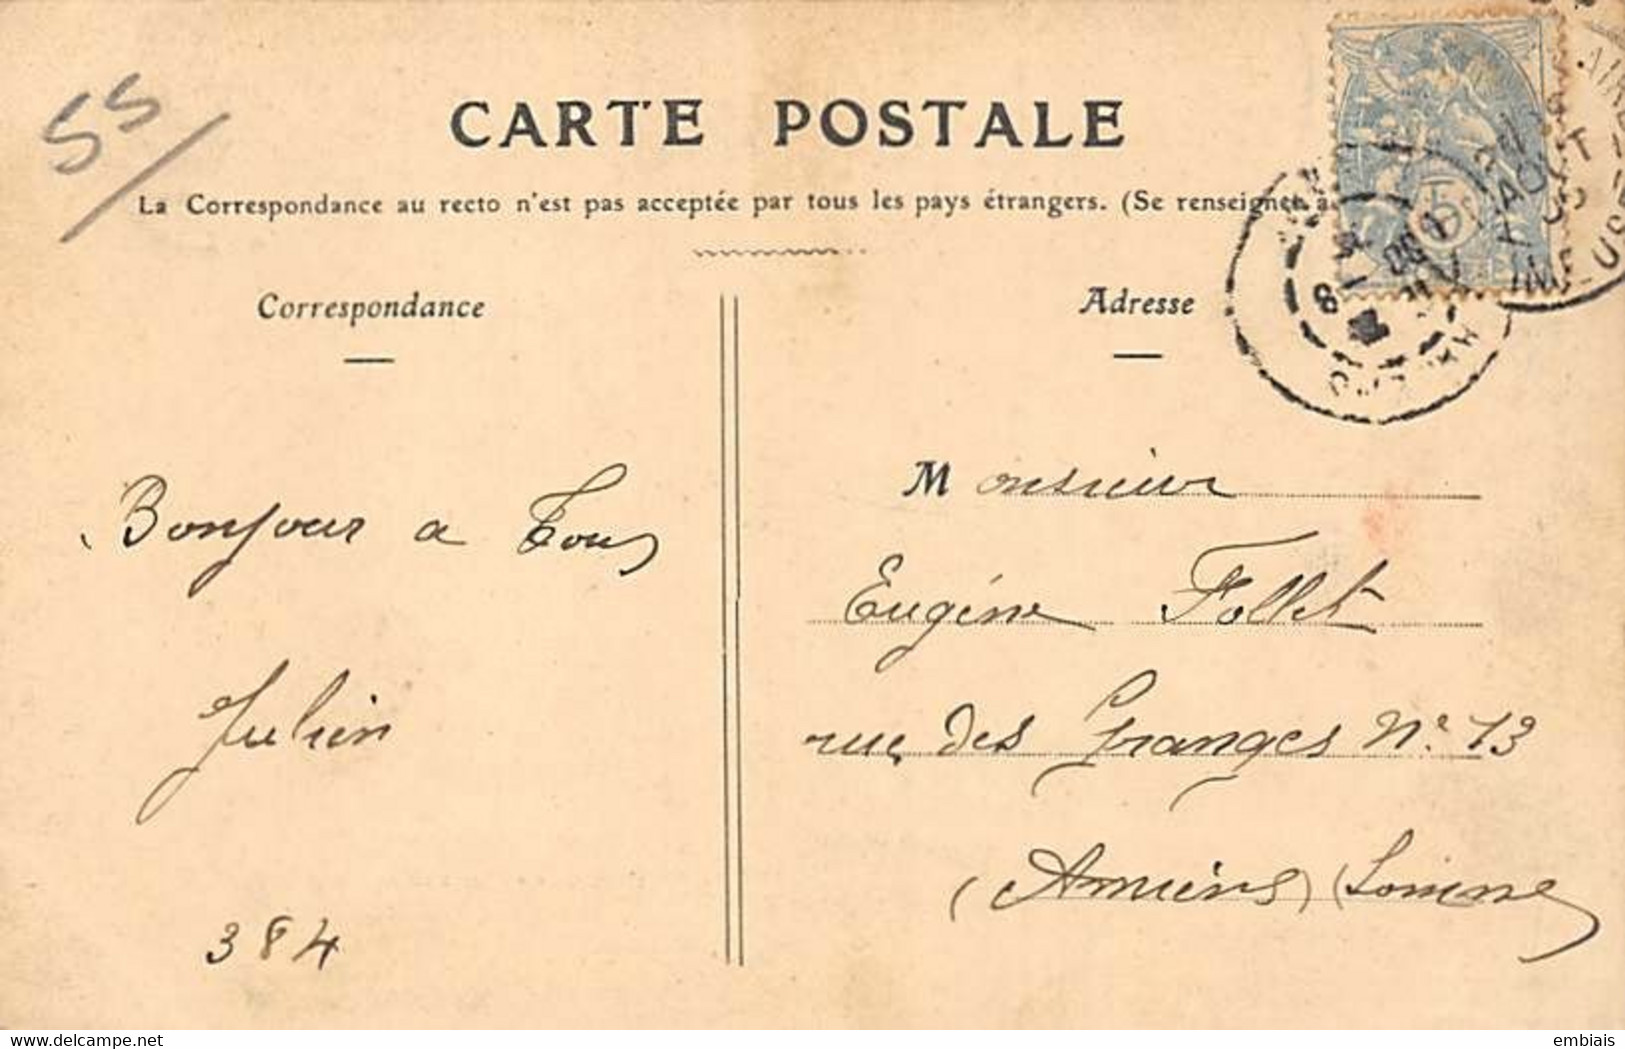 55
CARTE POSTALE
La Correspondance au recto n'est pas acceptée par tous les pays étrangers. (Se renseigner à
5c
AOUT
MEUSE
Correspondance
Adresse
Bonjour a Tous
Julien
384
Monsieur
Eugéne Follet
rue des Granges N° 13
(Amiens) (Somme)
www.delcampe.net
embiais